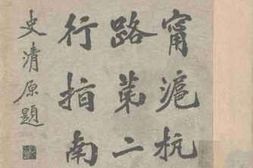 甯滬杭
路第二
行指南
史清原題